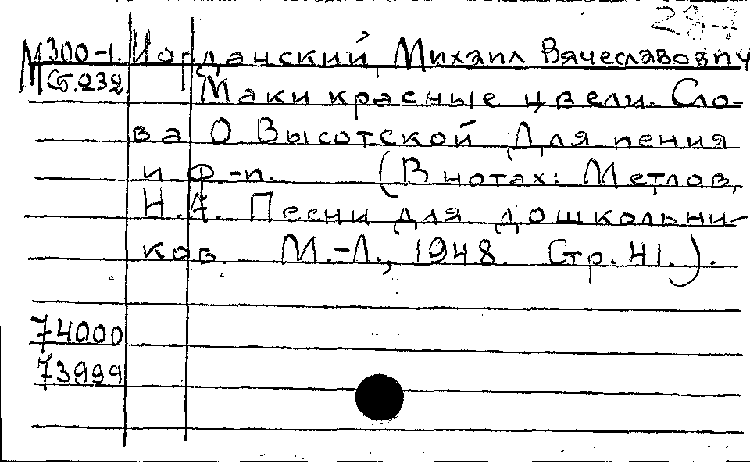 М300-1 Иорданский, Михаил Вячеславович
М Ст.232 Маки красные цвели. Сло-
ва О Высотской Для пения
и ф-п. (В нотах: Метлов,
Н.А. Песни для дошкольни-
ков. М.-Л., 1948. Стр. 41.).
74000
73999